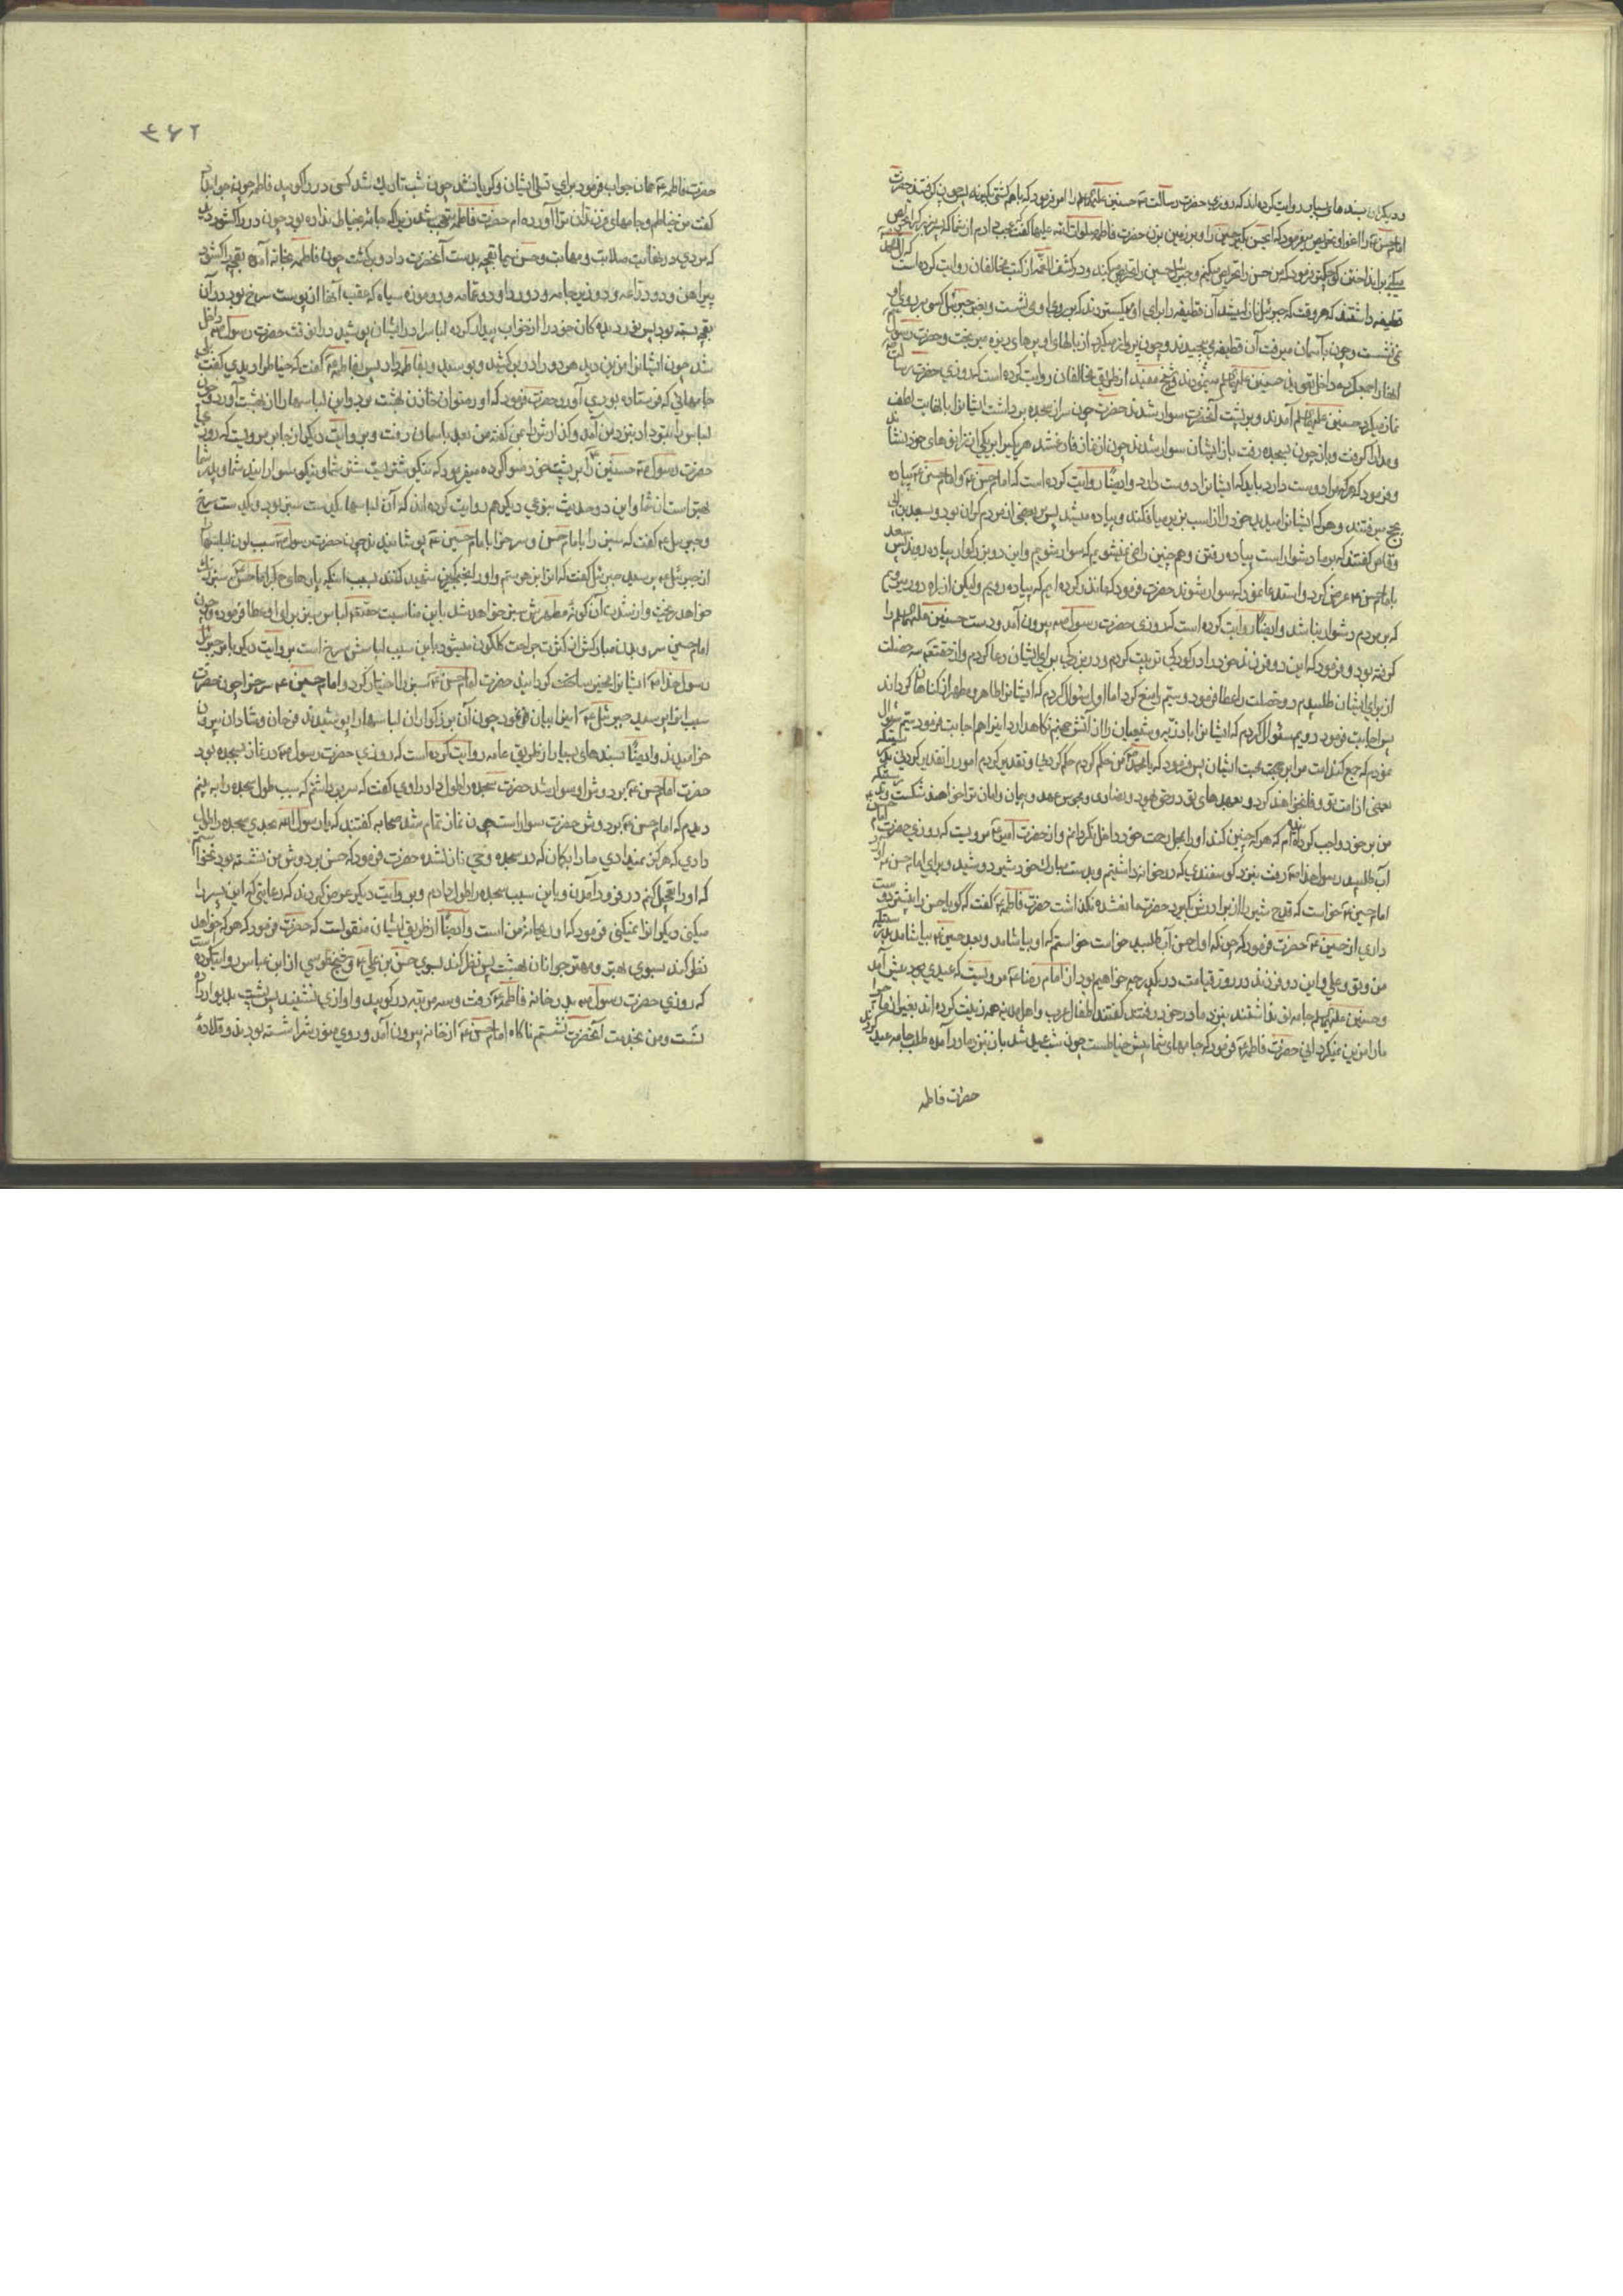 و دیگران بسندهای بسیار روایت کرده‌اند که روزی حضرت رسالت حسنین را امر فرمود که باهم کشتی بگیرند چون کشتی گرفتند حضرت
امام حسن را میفرمود که ای حسن بگیر حسین را و بر زمین بزن حضرت فاطمه صلوات الله علیها گفت عجب دارم از شما که
فرمود که من حسن را تحریص میکنم و جبرئیل حسین را تحریص میکند و در کشف الغمه از کتب مخالفان روایت کرده است
قطیفه داشتند که هر وقت که جبرئیل نازل میشد آن قطیفه را برای او میگستردند که بر روی او می نشست و بغیر جبرئیل کسی بر روی او
نمی نشست و چون بآسمان میرفت آن قطیفه را می پیچیدند و چون پرواز میکرد از بالهای او پرهای ریزه میریخت و حضرت رسول
آنها را جمع کرده داخل تعویذ حسنین مینمودند و شیخ مفید از طریق مخالفان روایت کرده است که روزی حضرت رسالت
نماز میکرد حسنین آمدند و بر پشت آنحضرت سوار شدند حضرت چون سر از سجده برداشت ایشانرا بانهایت لطف
و مدارا گرفت و باز چون بسجده رفت باز ایشان سوار شدند چون از نماز فارغ شد هر یک را بر یکی از رانهای خود نشاند
و فرمود که هر که مرا دوست دارد باید که ایشانرا دوست دارد و ایضا روایت کرده است که امام حسن و امام حسین پیاده
بحج میرفتند و هر که ایشانرا میدید خود را از اسب بزیر میافکند و پیاده میشد پس بر بعضی از مردم گران بود و بسعد بن ابی
وقاص گفتند که بر ما دشوار است پیاده رفتن و همچنین راضی نمیشویم که سوار شویم و این دو بزرگوار پیاده روند پس سعد
بامام حسن عرض کرد و استدعا نمود که سوار شوند حضرت فرمود که ما نذر کرده‌ایم که پیاده رویم ولیکن از راه دور میرویم
که بر مردم دشوار نباشد و ایضا روایت کرده است که روزی حضرت رسول بیرون آمد و دست حسنین را
گرفته بود و فرمود که این دو فرزند خود را در کودکی تربیت کردم و در بزرگی برای ایشان دعا کردم و از حقتعالی سه خصلت
از برای ایشان طلبیدم دو خصلت را عطا فرمود و سیم را منع کرد اما اول سؤال کردم که ایشانرا طاهر و مطهر از گناهان گرداند
پس اجابت فرمود دویم سئوال کردم که ایشانرا با ذریه و شیعیان را از آتش جهنم نگاهدارد اینرا هم اجابت فرمود سیم سئوال
نمودم که جمع کند امت مرا بر محبت ایشان پس فرمود که یا محمد من حکم کردم حکم کردنی و تقدیر کردم امور را تقدیر کردنی
بعضی از امت تو وفا نخواهند کرد و بعهدهای تو در حق یهود و نصاری و مجوس عهد و پیمان و امان ترا خواهند شکست
من بر خود واجب کرده‌ام که هر که چنین کند او را بمحل رحمت خود داخل نگردانم و از حضرت امیر مرویست که روزی حضرت امام
آب طلبید رسول خدا رفت بنزد گوسفندی که در خانه داشتیم و بدست مبارک خود شیر دوشید و برای امام حسن آورد
امام حسین خواست که قدح شیر را از برادرش بگیرد حضرت مانع شده نگذاشت حضرت فاطمه گفت که گویا حسن را بیشتر دوست
داری از حسین حضرت فرمود که چونکه اول حسن آب طلبید خواست خواستم که او بیاشامد و بعد حسین بیاشامد
من و تو و علی و این دو فرزند در روز قیامت در یک درجه خواهیم بود از امام رضا مرویست که عیدی بود پیش آمد
و حسنین جامه نو نداشتند بنزد مادر خود رفتند گفتند اطفال عرب و اهل مدینه همه زینت کرده‌اند بغیر از ما چرا
ما را مزین نمیگردانی حضرت فاطمه فرمود که جامهای شما پیش خیاطست چون شب عید شد باز بنزد مادر آمده طلب جامه عید کردند
حضرت فاطمه
۴۶۲
حضرت فاطمه همان جواب فرمود برای تسلی ایشان و گریان شد چون شب تاریک شد کسی در را کوبید فاطمه چون جواب داد
گفت من خیاطم و جامهای فرزندان ترا آورده‌ام حضرت فاطمه متعجب شد زیرا که جامه بخیاط نداده بود چون در را گشود دید
که مردی در نهایت صلابت و مهابت و حسن سیما بقچه بدست آنحضرت داد و برگشت چون فاطمه بخانه آمده بقچه را گشود
پیراهن و دو دراعه و دو زیرجامه و دو ردا و دو عمامه و دو موزه سیاه که عقب آنها از پوست سرخ بود در آن
بقچه بسته بود پس نور دیده‌گان خود را از خواب بیدار کرده لباسها را در ایشان پوشید در این وقت حضرت رسول داخل
شد چون ایشانرا مزین دید هر دو را در بر کشید و بوسید پس بفاطمه گفت که خیاط را دیدی گفت بلی
جامهائی که فرستاده بودی آورد حضرت فرمود که او رضوان خازن بهشت بود و این لباسها را از بهشت آورد و چون
لباس را بتو داد بنزد من آمد و گذارش را بمن گفته من بعد بآسمان رفت و بروایت دیگر از جابر مرویست که روزی
حضرت رسول حسنین را بر پشت خود سوار کرده میفرمود که نیکو شتریست شتر شما و نیکو سوارانید شما و پدر شما
بهتر است از شما و این دو حدیث بنوعی دیگر هم روایت کرده‌اند که آن لباسها یکدست سبز بود و یکدست سرخ
و جبرئیل گفت که سبز را بامام حسن و سرخرا بامام حسین پوشانیدند چون حضرت رسول سبب لون لباسها
از جبرئیل پرسید جبرئیل گفت که اینرا بزهر ستم و او را بخنجر کین شهید کنند
خواهد ریخت و از شدت آن گونه مطهرش سبز خواهد شد باین مناسبت حقتعالی لباس سبز برای او عطا فرموده و چون
امام حسین سر و بدن مبارکش از کثرت جراحت گلگون میشود باین سبب لباسش سرخ است بروایت دیگر باز جبرئیل
رسول خدا ایشانرا مخیر ساخت گردانید حضرت امام حسن سبز را اختیار کرد و امام حسین سرخرا چون حضرت
سبب اینرا پرسید جبرئیل اینرا بیان فرمود چون آن بزرگواران لباسها را پوشیدند فرحان و شادان بیرون
خرامیدند و ایضا بسندهای بسیار از طریق عامه روایت کرده است که روزی حضرت رسول در نماز بسجده بود
حضرت امام حسن بر دوش او سوار شد حضرت سجده را طول داد راوی گفت که سر برداشتم که سبب طول سجده را به بینم
دیدم که امام حسن بر دوش حضرت سوار است چون نماز تمام شد صحابه گفتند که یا رسول الله بحدی سجده را طول
دادی که هرگز نمیدادی ما را بگمان که در سجده وحی نازل شده حضرت فرمود که حسن بر دوش من نشسته بود نخواستم
که او را تعجیل کنم در فرود آمدن و باین سبب سجده را طول دادم و بروایت دیگر عرض کردند که رعایتی که این پسر را
میکنی دیگرانرا نمیکنی فرمود که او ریحانه من است و ایضا از طریق ایشان منقولست که حضرت فرمود که هر که خواهد
نظر کند بسوی بهتر و مهتر جوانان بهشت پس نظر کند بسوی حسن بن علی و شیخ طوسی از ابن عباس روایت کرده است
که روزی حضرت رسول بدر خانه فاطمه رفت و سه مرتبه در کوبید و آوازی نشنید پس پشت بدیوار داده
نشست و من بخدمت آنحضرت نشستم ناگاه امام حسن از خانه بیرون آمد و روی منورش را شسته بودند و قلاده